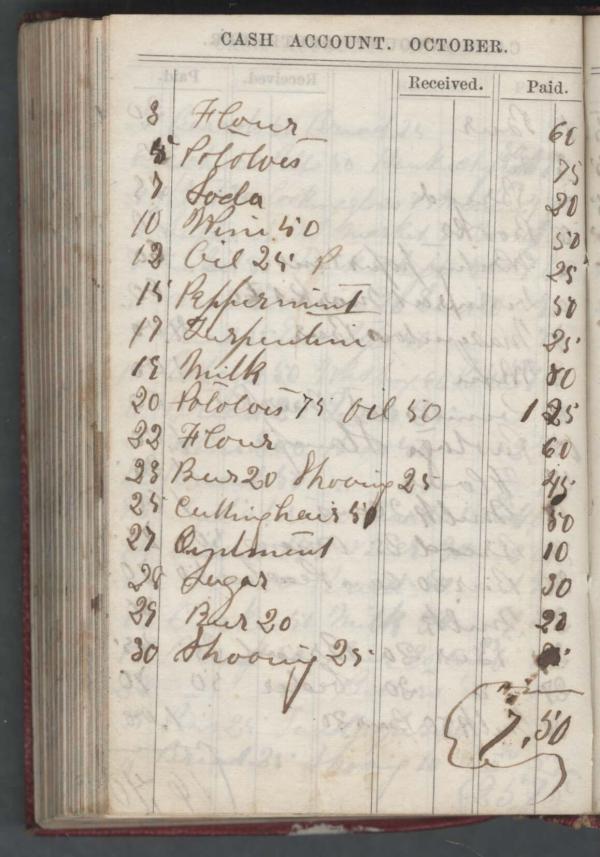 CASH ACCOUNT. OCTOBER.
Received. Paid.
3 Flour 60
5 Potatoes 75
7 Soda 20
10 Wine 50 50
12 Oil 25 25
15 Peppermint 50
17 Turpentine 25
18 Milk 80
20 Potatoes 75 Oil 50 1 25
22 Flour 60
23 Beer 20 Shoeing 25 45
25 Cutting hair 50 50
27 Oyntment 10
28 Sugar 30
29 Beer 20 20
30 Shoeing 25
7,50